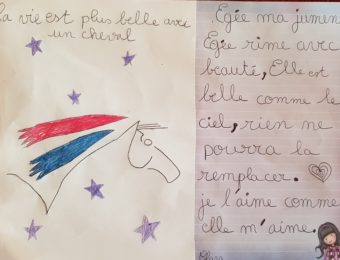 la vie est plus belle avec
un cheval
Egée ma jumen
Egée rime avec
beauté, Elle est
belle comme le
ciel, rien ne
pourra la
remplacer.
je l'aime comme
elle m'aime.